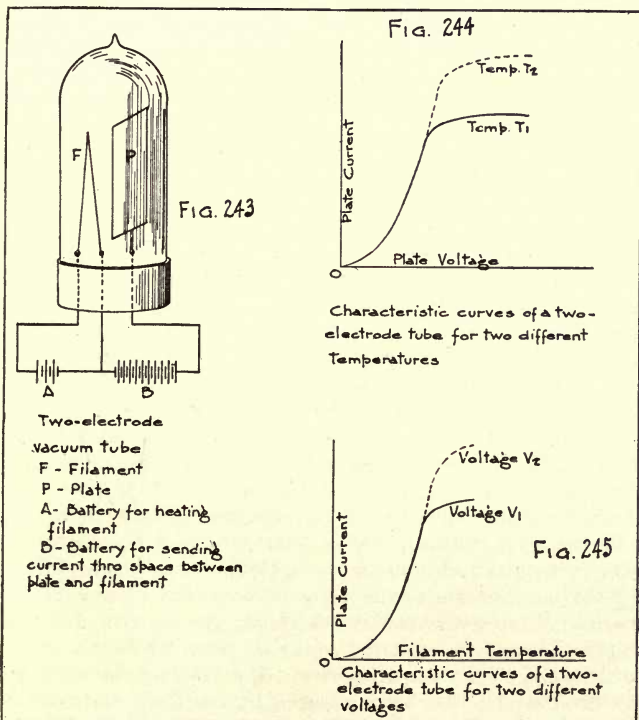 F
P
FIG. 243
A
B
Two-electrode
vacuum tube
F - Filament
P - Plate
A - Battery for heating
filament
B - Battery for sending
current thro space between
plate and filament
FIG. 244
Temp. T2
Temp. T1
Plate Current
Plate Voltage
O
Characteristic curves of a two-
electrode tube for two different
Temperatures
Voltage V2
Voltage V1
FIG. 245
Plate Current
Filament Temperature
O
Characteristic curves of a two-
electrode tube for two different
voltages